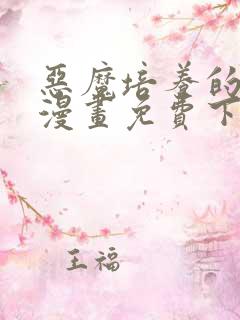 惡魔培養的
漫畫免費下
王福